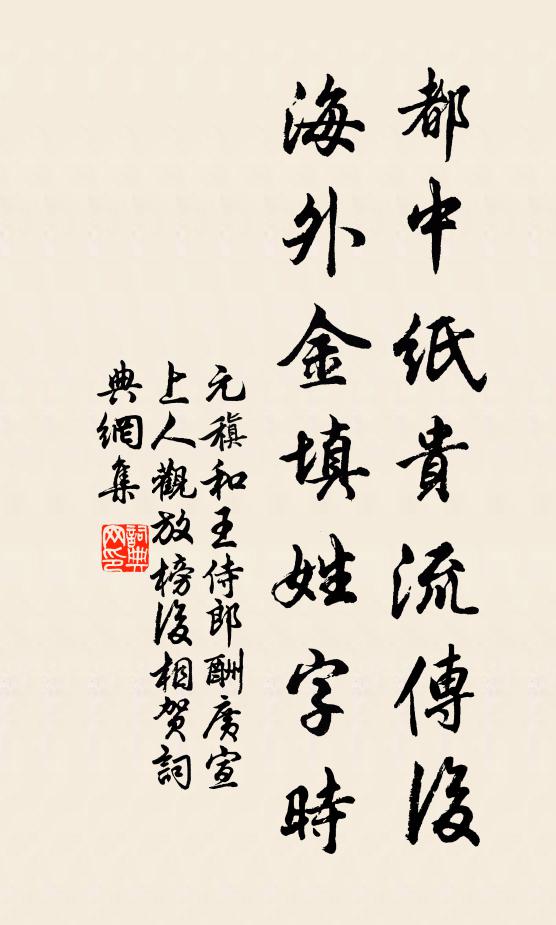 都中紙貴流傳後
海外金填姓字時
元稹和王侍郎酬廣宣
上人觀放榜後相賀詞
典網集
詞典
网印